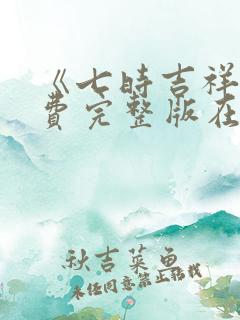 《七时吉祥
费完整版在
秋吉菜鱼
未经同意禁止转载